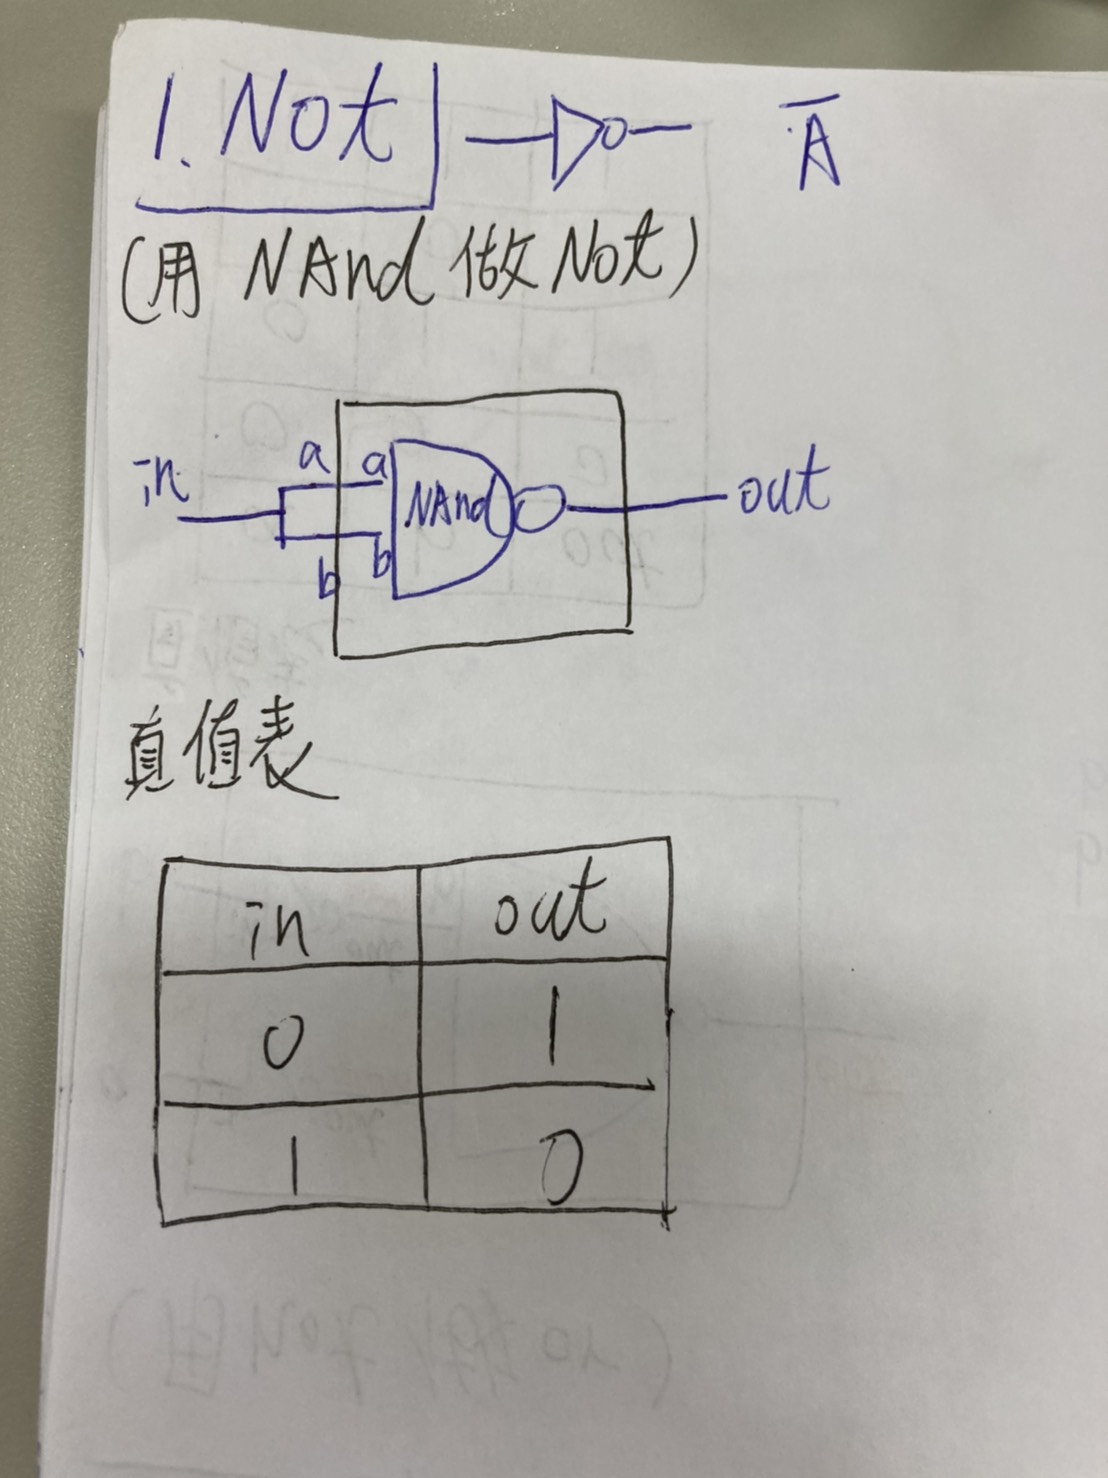 1. Not A̅
(用 NAnd 做 Not)
in a a NAnd out
b b
真值表
in out
0 1
1 0